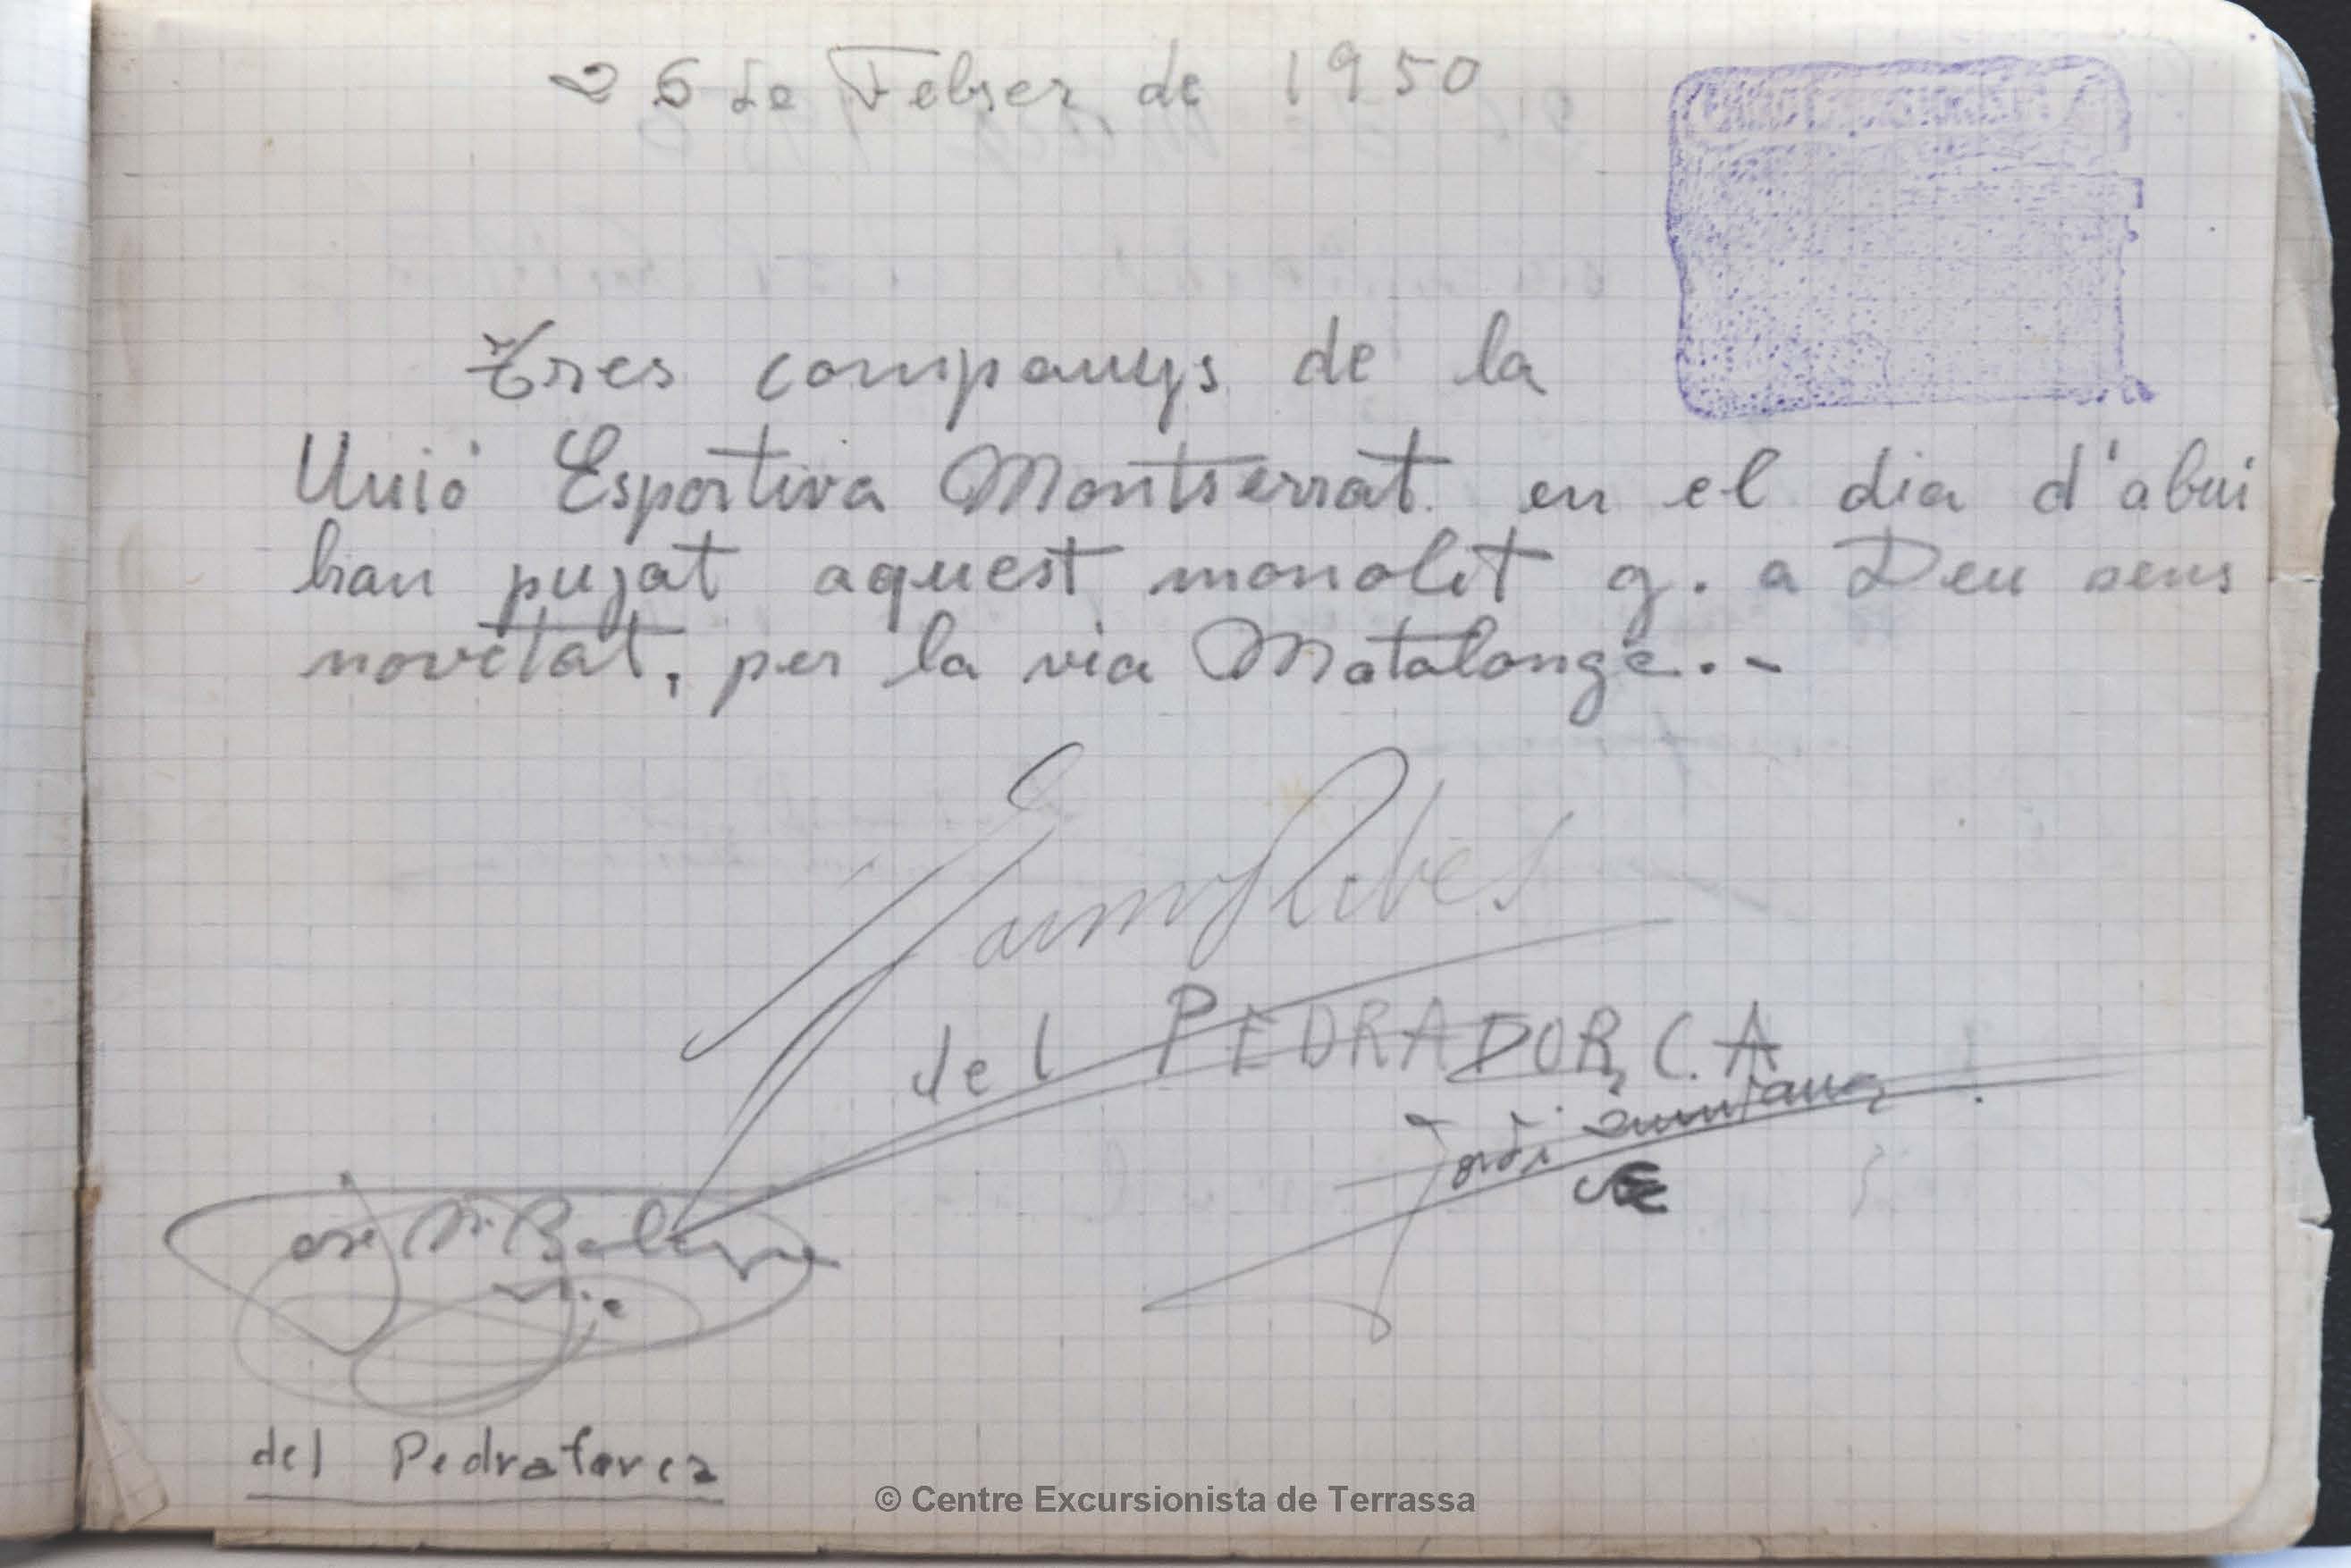 26 de Febrer de 1950
Tres companys de la
Unió Esportiva Montserrat en el dia d'abui
han pujat aquest monolit g. a Deu sens
novetat, per la via Matalonge.-
Jaume Ribes
del PEDRADOR, C.A
Jordi Quintana
José Mª
del Pedraforca
© Centre Excursionista de Terrassa